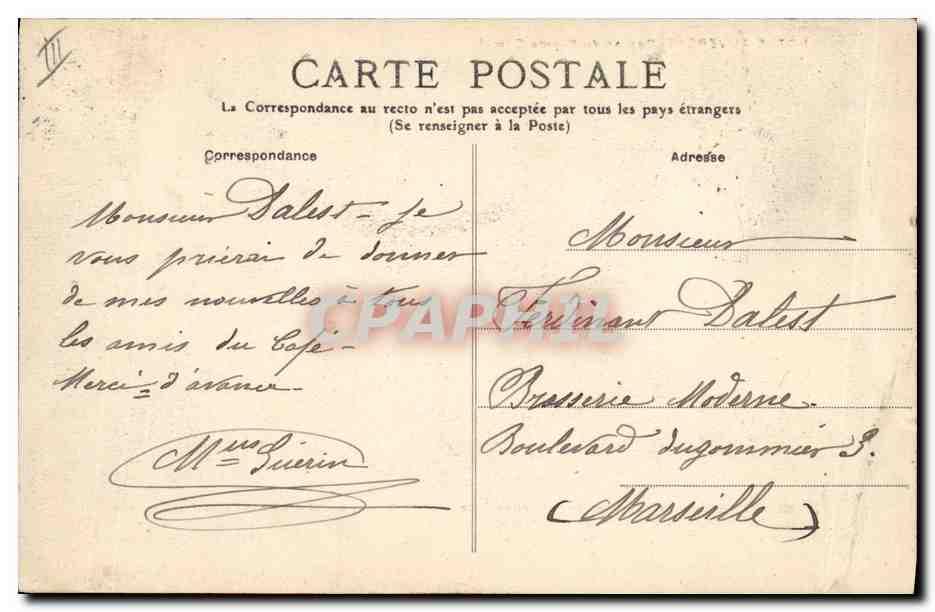 III
CARTE POSTALE
La Correspondance au recto n'est pas acceptée par tous les pays étrangers
(Se renseigner à la Poste)
Correspondance
Monsieur Dalest - Je
vous prierai de donner
de mes nouvelles à tous
les amis du Café -
Merci = d'avance -
Mius Guérin
Adresse
Monsieur
Ferdinant Dalest
Brasserie Moderne.
Boulevard dugommier 3.
(Marseille)
CPAPHIL